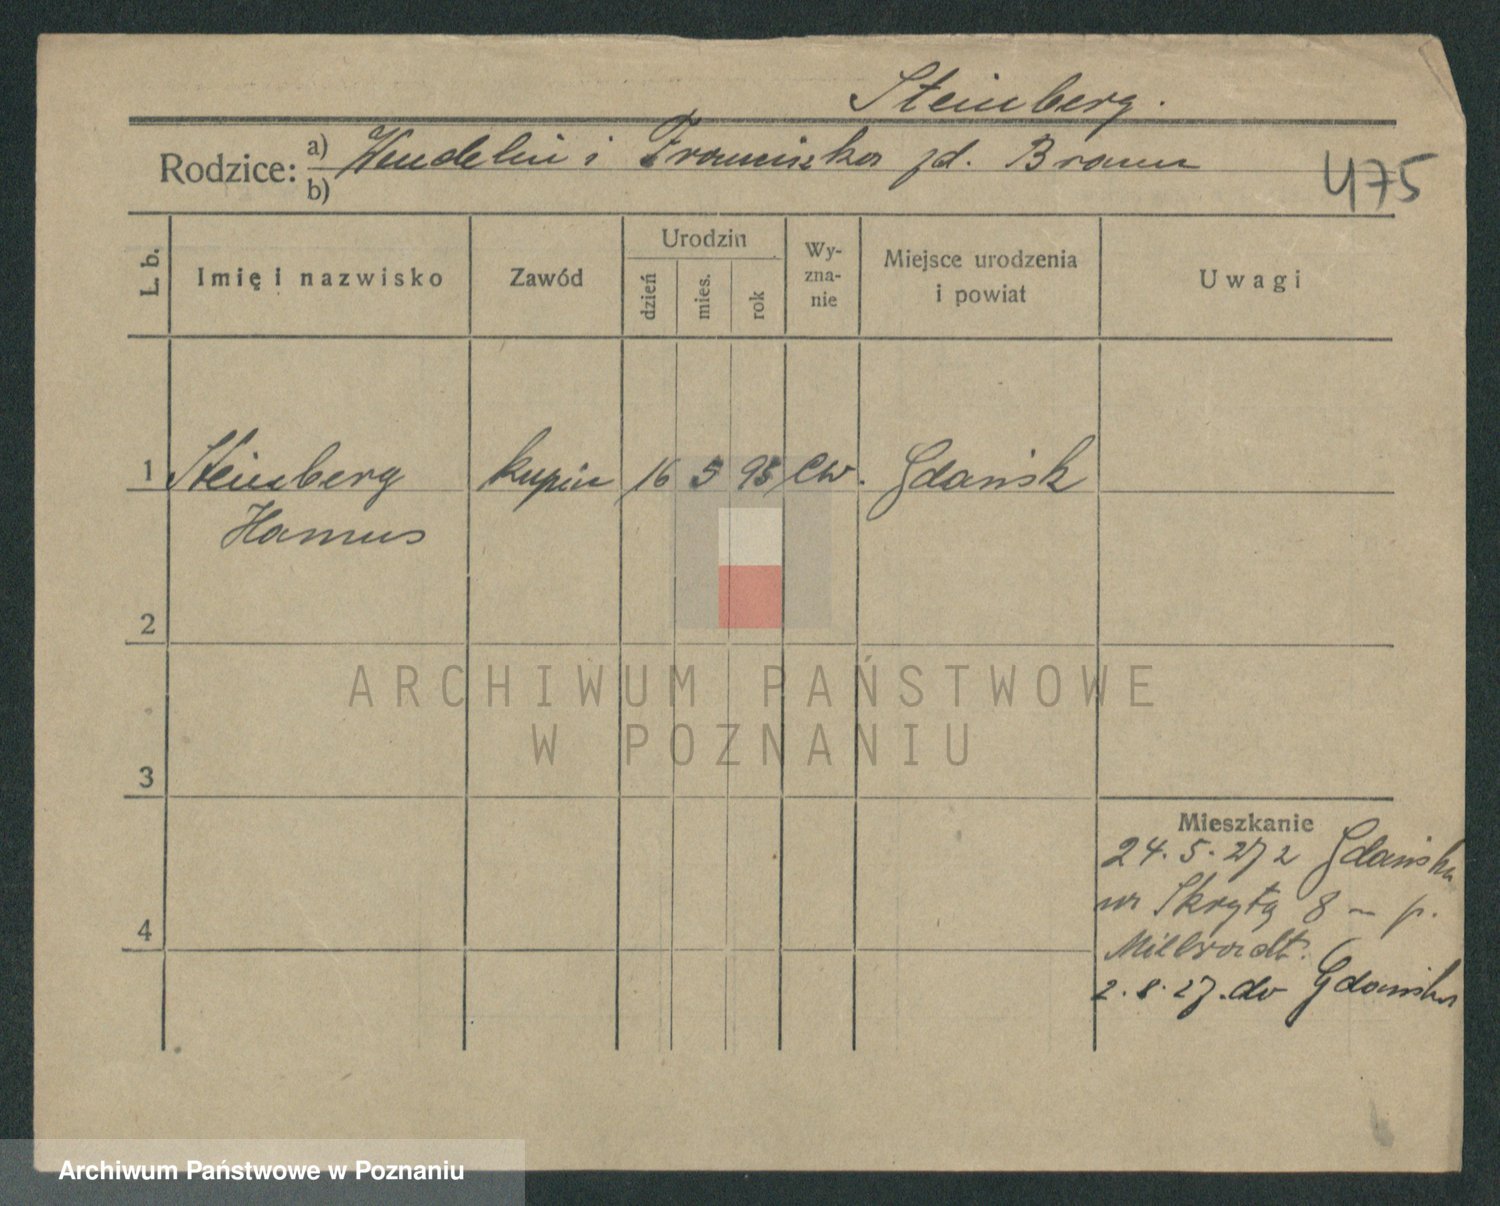 Steinberg.
Rodzice: a) Wendelin i Franciszka zd. Braun
b)
475
L. b.
Imię i nazwisko
Zawód
Urodzin
dzień
mies.
rok
Wy-
zna-
nie
Miejsce urodzenia
i powiat
Uwagi
1 Steinberg kupiec 16 5 95 ew. Gdańsk
Hannus
2
ARCHIWUM PAŃSTWOWE
W POZNANIU
3
Mieszkanie
24. 5. 27 z Gdańska
na Skrytą 8 – p.
4
2. 8. 27. do Gdańska
Archiwum Państwowe w Poznaniu